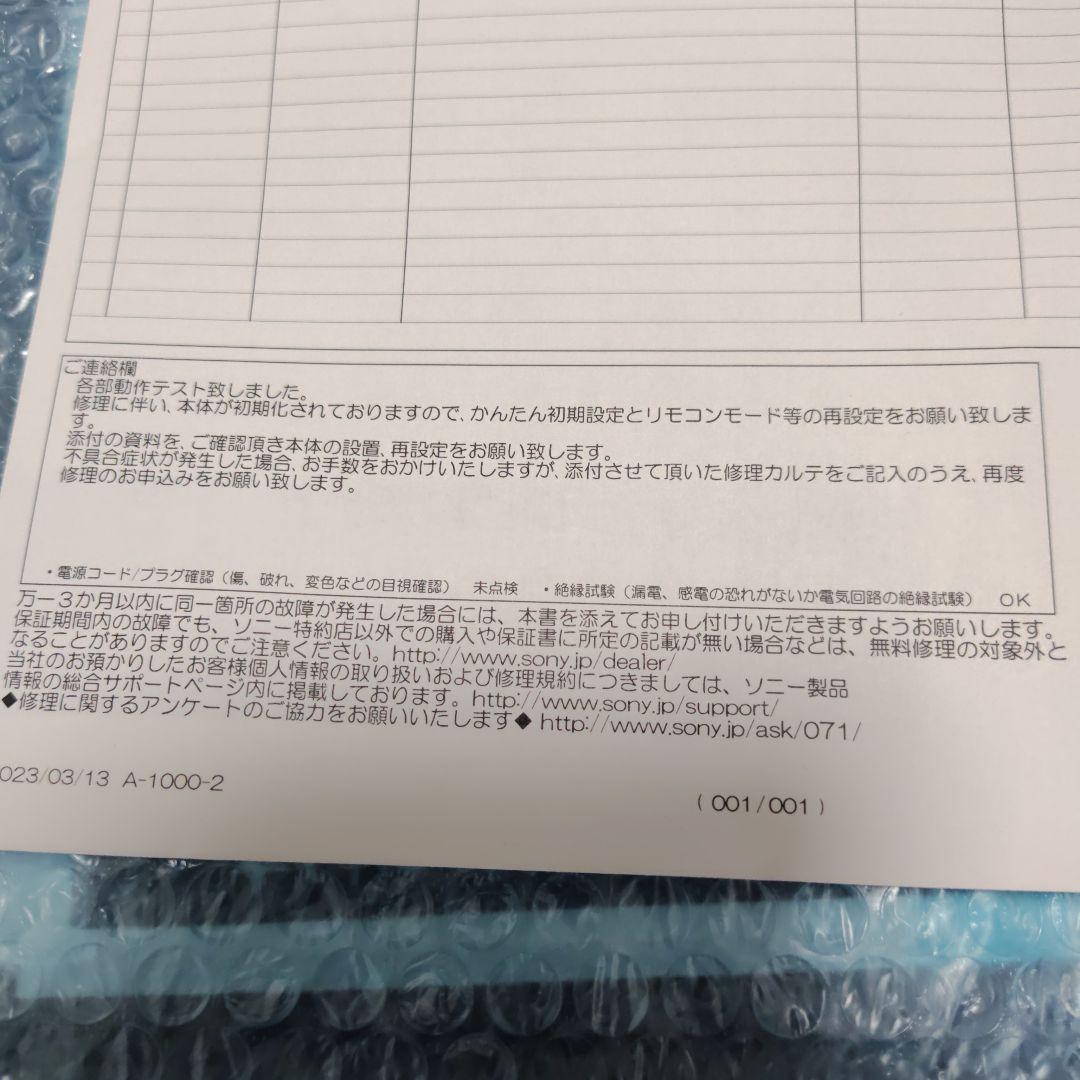 ご連絡欄
各部動作テスト致しました。
修理に伴い、本体が初期化されておりますので、かんたん初期設定とリモコンモード等の再設定をお願い致しま
す。
添付の資料を、ご確認頂き本体の設置、再設定をお願い致します。
不具合症状が発生した場合、お手数をおかけいたしますが、添付させて頂いた修理カルテをご記入のうえ、再度
修理のお申込みをお願い致します。
・電源コード/プラグ確認（傷、破れ、変色などの目視確認） 未点検 ・絶縁試験（漏電、感電の恐れがないか電気回路の絶縁試験） OK
万一3か月以内に同一箇所の故障が発生した場合には、本書を添えてお申し付けいただきますようお願いします。
保証期間内の故障でも、ソニー特約店以外での購入や保証書に所定の記載が無い場合などは、無料修理の対象外と
なることがありますのでご注意ください。http://www.sony.jp/dealer/
当社のお預かりしたお客様個人情報の取り扱いおよび修理規約につきましては、ソニー製品
情報の総合サポートページ内に掲載しております。http://www.sony.jp/support/
◆修理に関するアンケートのご協力をお願いいたします◆ http://www.sony.jp/ask/071/
023/03/13 A-1000-2
(001/001)